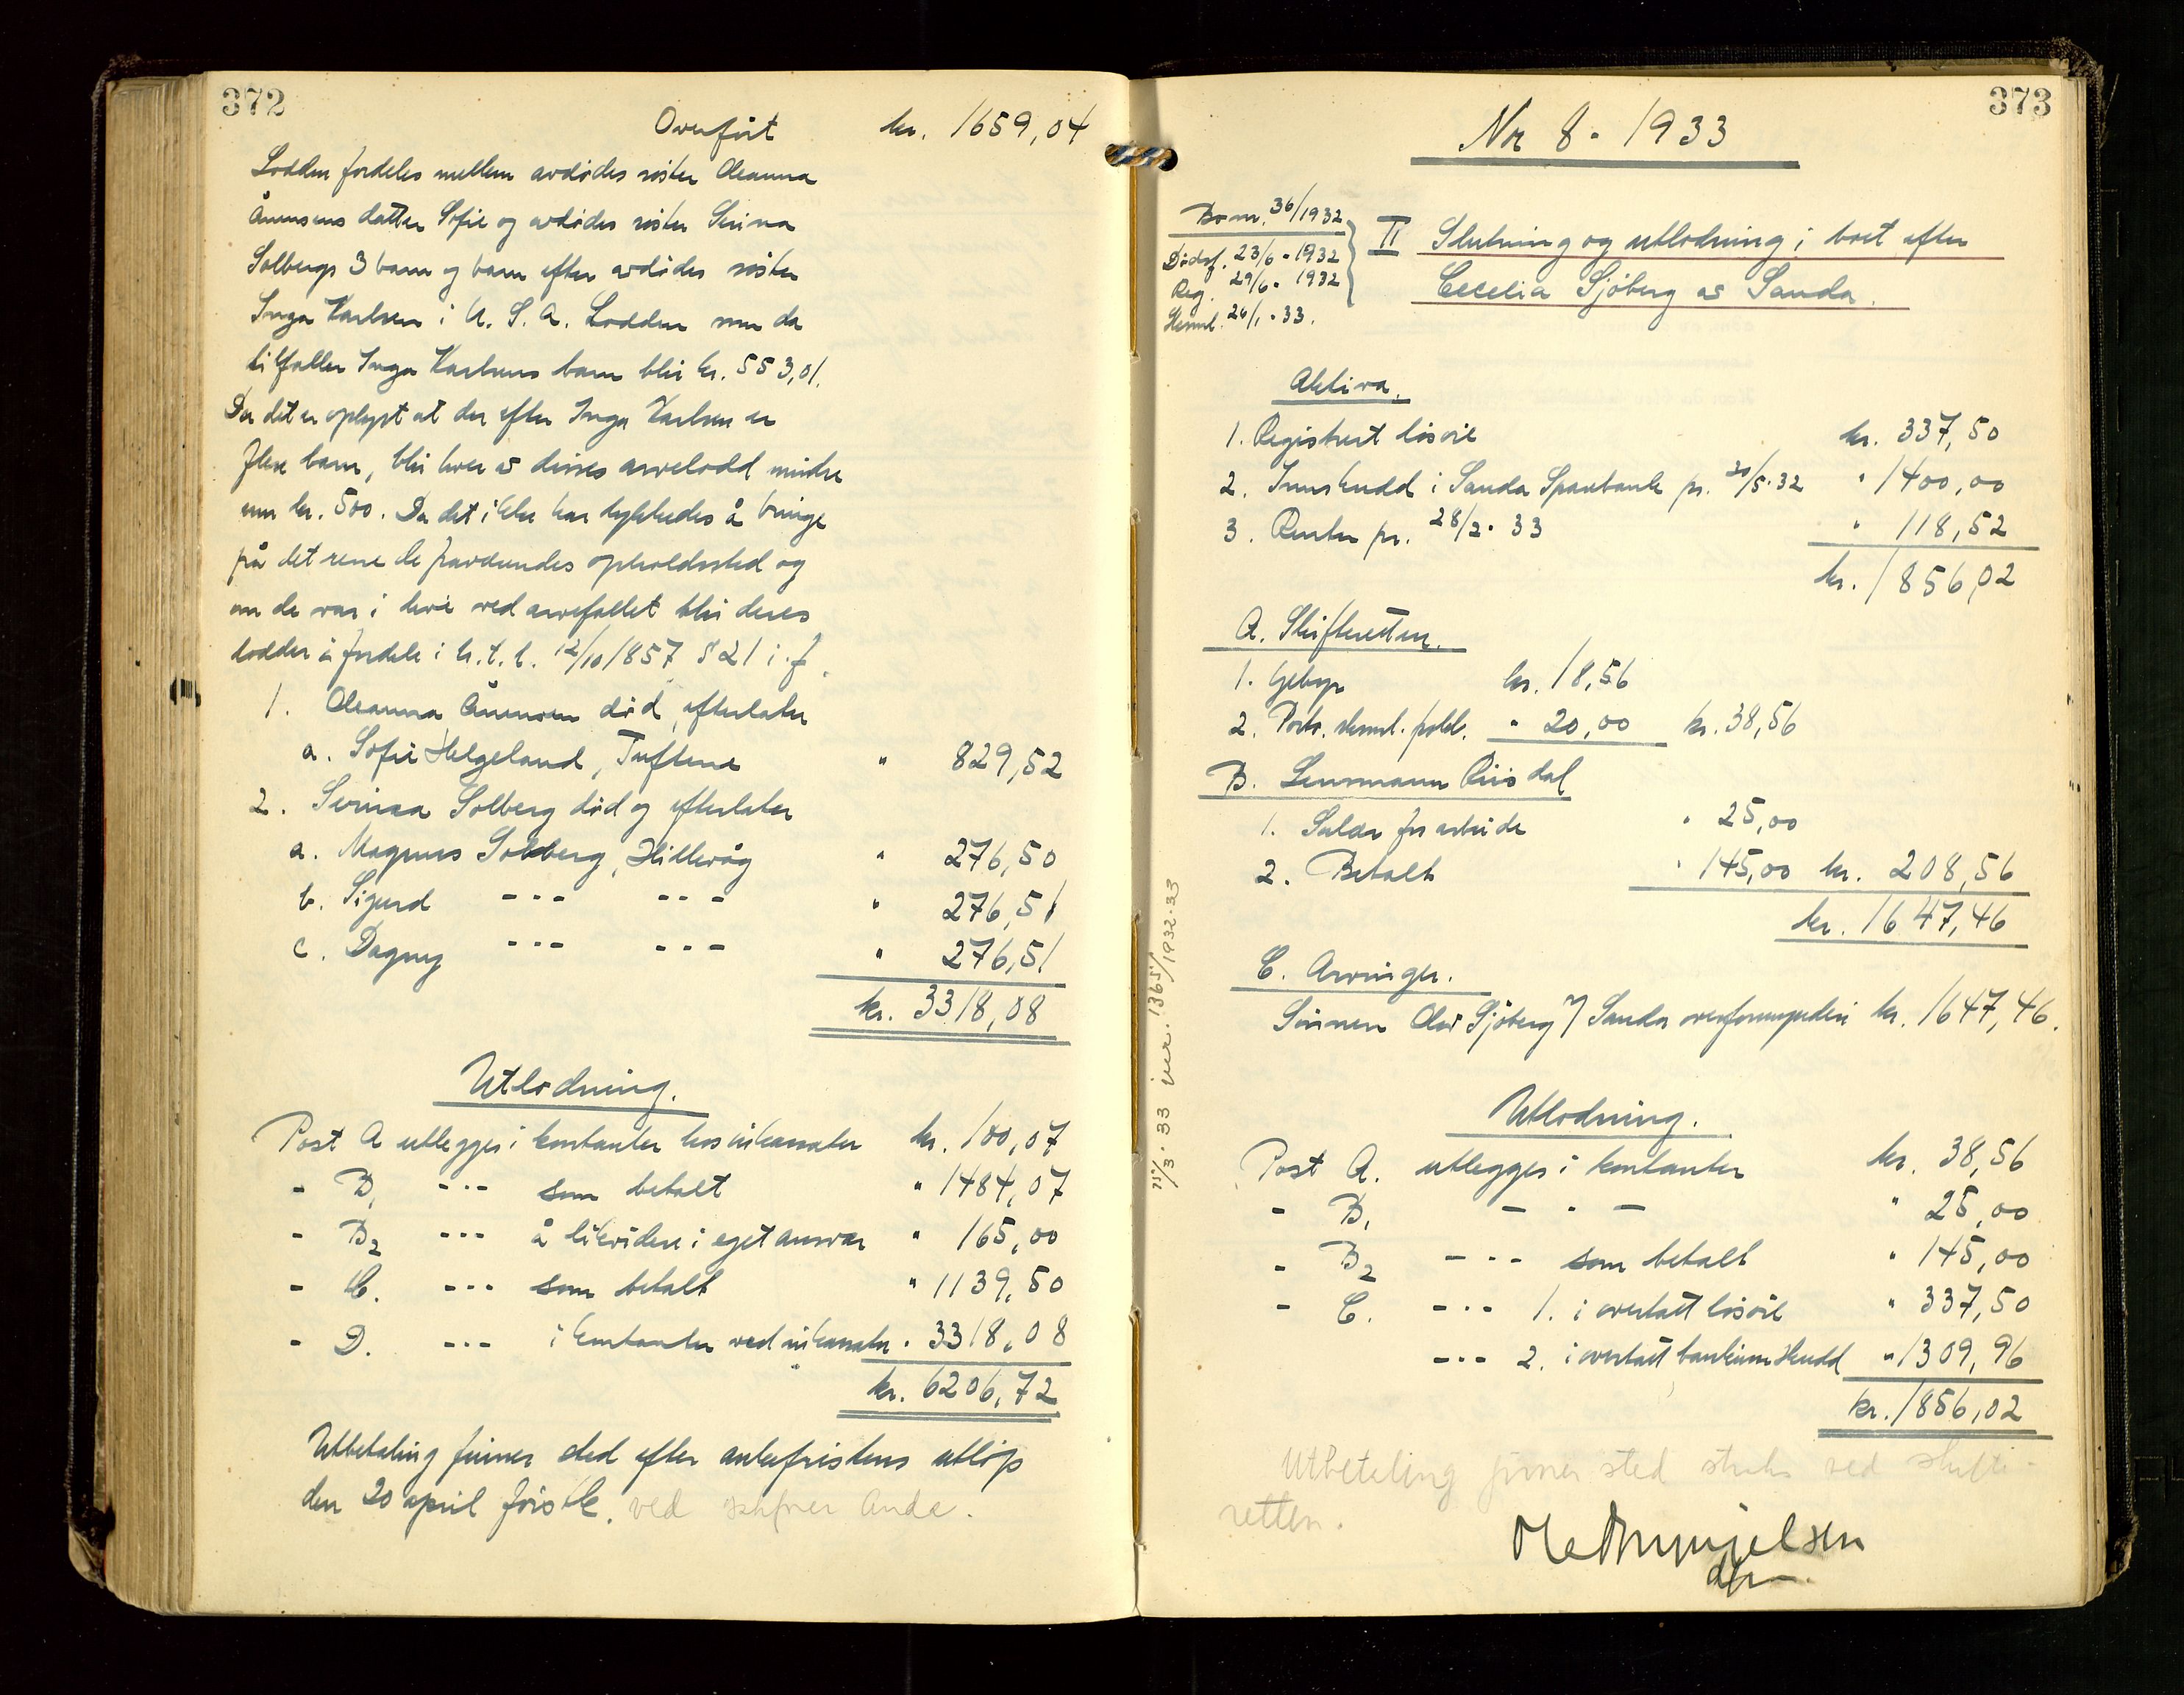 372
Overført kr. 1659,04
Lodden fordeles mellem avdødes søster Oleanna
Ånensens datter Sofie og avdødes søster Serina
Solbergs 3 barn og barn efter avdødes søster
Inga Karlsen i U.S.A. Lodden som da
tilfaller Inga Karlsens barn blir kr. 553,01.
Da det er oplyst at der efter Inga Karlsen er
flere barn, blir hver av disses arvelodd mindre
enn kr. 500. Da det ikke har lykkedes å bringe
på det rene de fraværendes opholdssted og
om de var i live ved arvefallet blir deres
lodder å fordele i h.t. l. 12/10 1857 § 21 i.f.
1. Oleanna Ånensen død, efterlater
a. Sofie Helgeland, Tuftene " 829,52
2. Serina Solberg død og efterlater
a. Magnus Solberg, Hillevåg " 276,50
b. Sigurd --- --- " 276,51
c. Dagny --- --- " 276,51
kr. 3318,08
Utlodning.
Post A utlegges i kontanter hos inkassator kr. 100,07
- B1 --- som betalt " 1484,07
- B2 --- å likvidere i eget ansvar " 165,00
- C. --- som betalt " 1139,50
- D. --- i kontanter ved inkassator " 3318,08
kr. 6206,72
Utbetaling finner sted efter ankefristens utløp
den 20 april førstk. ved skifter Anda.
373
Nr 8 - 1933
Bo nr. 36/1932
Dødsf. 23/6 - 1932
Reg. 29/6 - 1932
Heml. 26/1 - 33.
II Slutning og utlodning i boet efter
Cecelia Sjøberg av Sauda.
Aktiva.
1. Registrert løsøre kr. 337,50
2. Innskudd i Sauda Sparebank pr. 20/5-32 " 1400,00
3. Renter pr. 28/2-33 " 118,52
kr. 1856,02
A. Skifteretten.
1. Gebyr kr. 18,56
2. Porto. steml. prkl. " 20,00 kr. 38,56
B. Lensmann Riisdal
1. Salær for arbeide " 25,00
2. Betalt " 145,00 kr. 208,56
kr. 1647,46
C. Arvinger.
Sønnen Olav Sjøberg v/ Sauda overformynderi kr. 1647,46.
Utlodning.
Post A. utlegges i kontanter kr. 38,56
- B1 - - - " 25,00
- B2 --- som betalt " 145,00
- C. --- 1. i overtatt løsøre " 337,50
--- 2. i overtatt bankinnskudd " 1309,96
kr. 1856,02
Utbetaling finner sted straks ved skifte-
retten.
15/3. 33 inr. 1365/1932-33